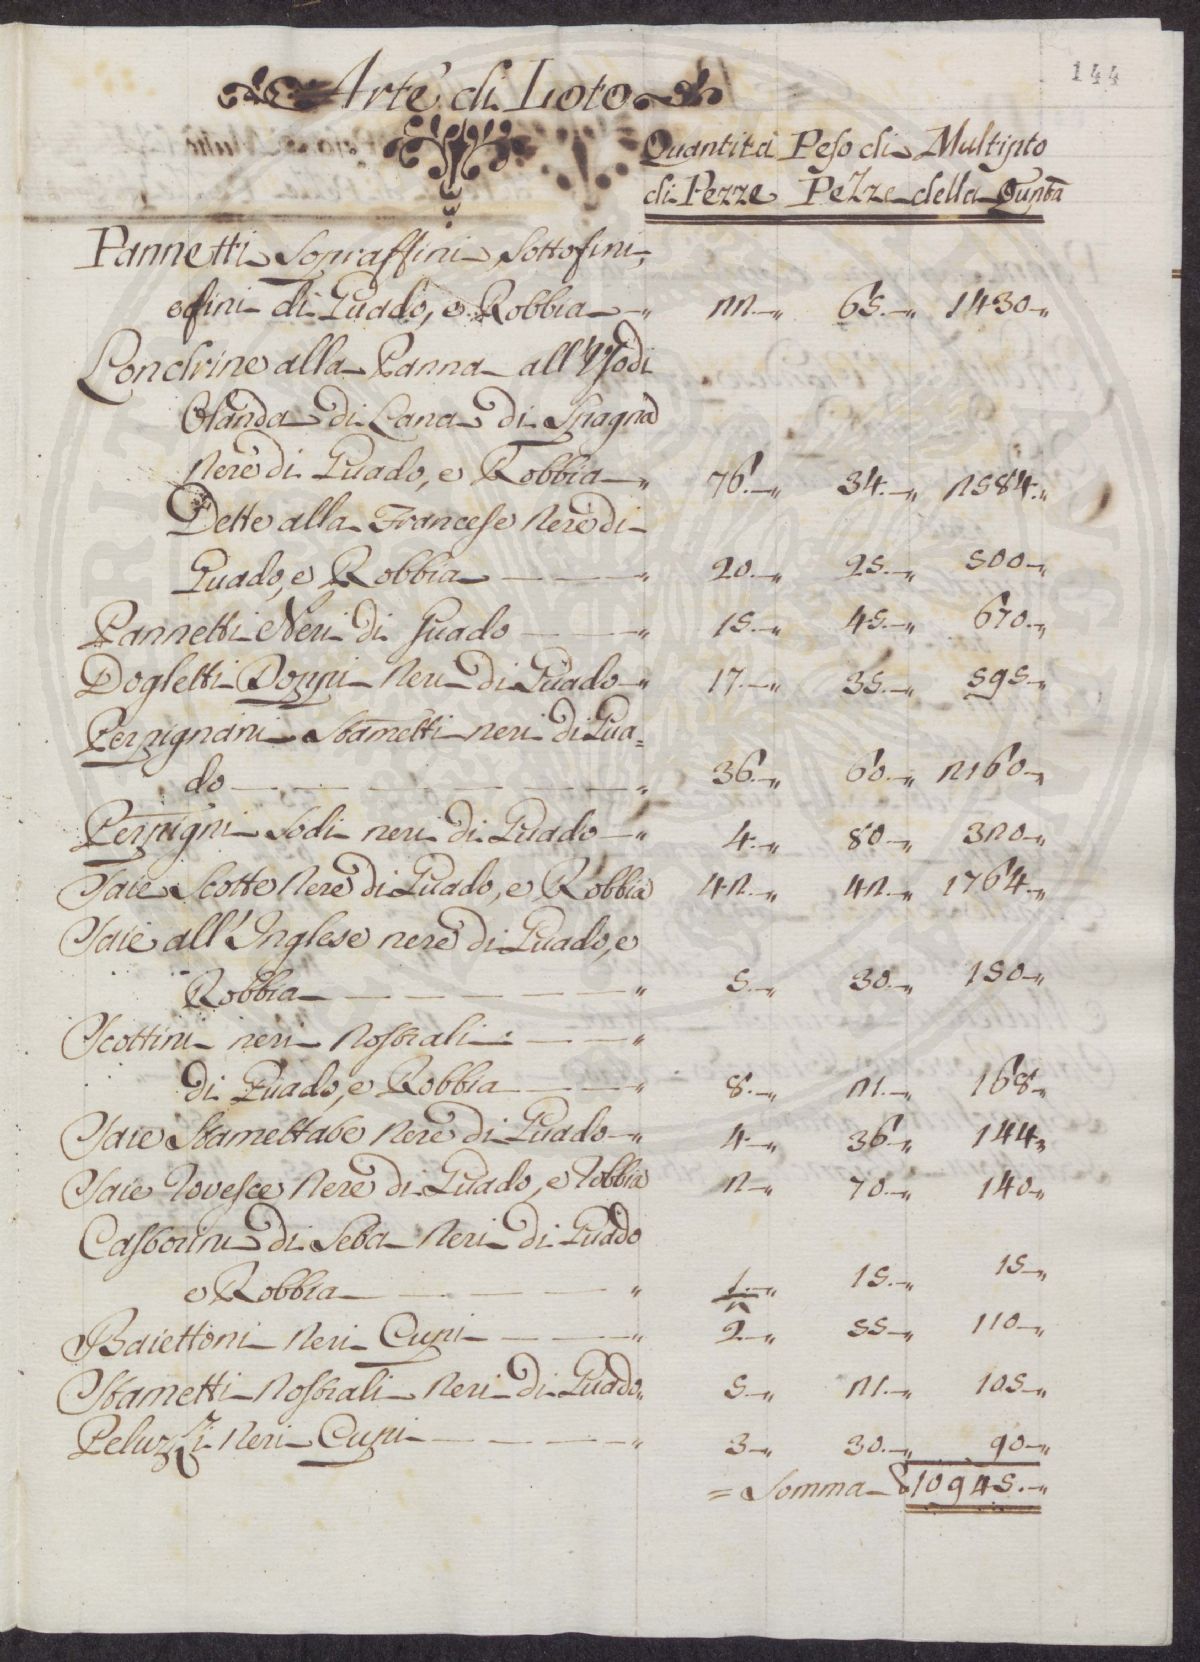 144
Arte di Loto
Quantità Peso di Multipto
di Pezze Pezze della Quntà
Pannetti Sopraffini, Sottofini,
e fini di Guado, e Robbia 22. 65. 1430
Londrine alla Panna all'Uso di
Olanda di Lana di Spagna
Nere di Guado, e Robbia 76. 34. 2584.
Dette alla Francese Nere di
Guado, e Robbia 20. 25. 500
Pannetti Neri di Guado 15. 45. 670.
Dogletti Doppi Neri di Guado 17. 35. 595
Perpignani Stametti neri di Gua=
do 36. 60. 2160
Perpigni Sodi neri di Guado 4. 80 320
Saie Scotte Nere di Guado, e Robbia 42. 42. 1764.
Saie all'Inglese nere di Guado, e
Robbia 5. 30. 150
Scottini neri Nostrali
di Guado, e Robbia 8. 21. 168
Saie Stamettate Nere di Guado 4 36 144
Saie Rovesce Nere di Guado, e Robbia 2 70. 140
Castorini di Seta Neri di Guado
e Robbia 1. 15. 15
Baiettoni Neri Cupi 2. 55 110
Stametti Nostrali Neri di Guado 5 21. 105
Peluzzi Neri Cupi 3 30. 90
= Somma 10945.